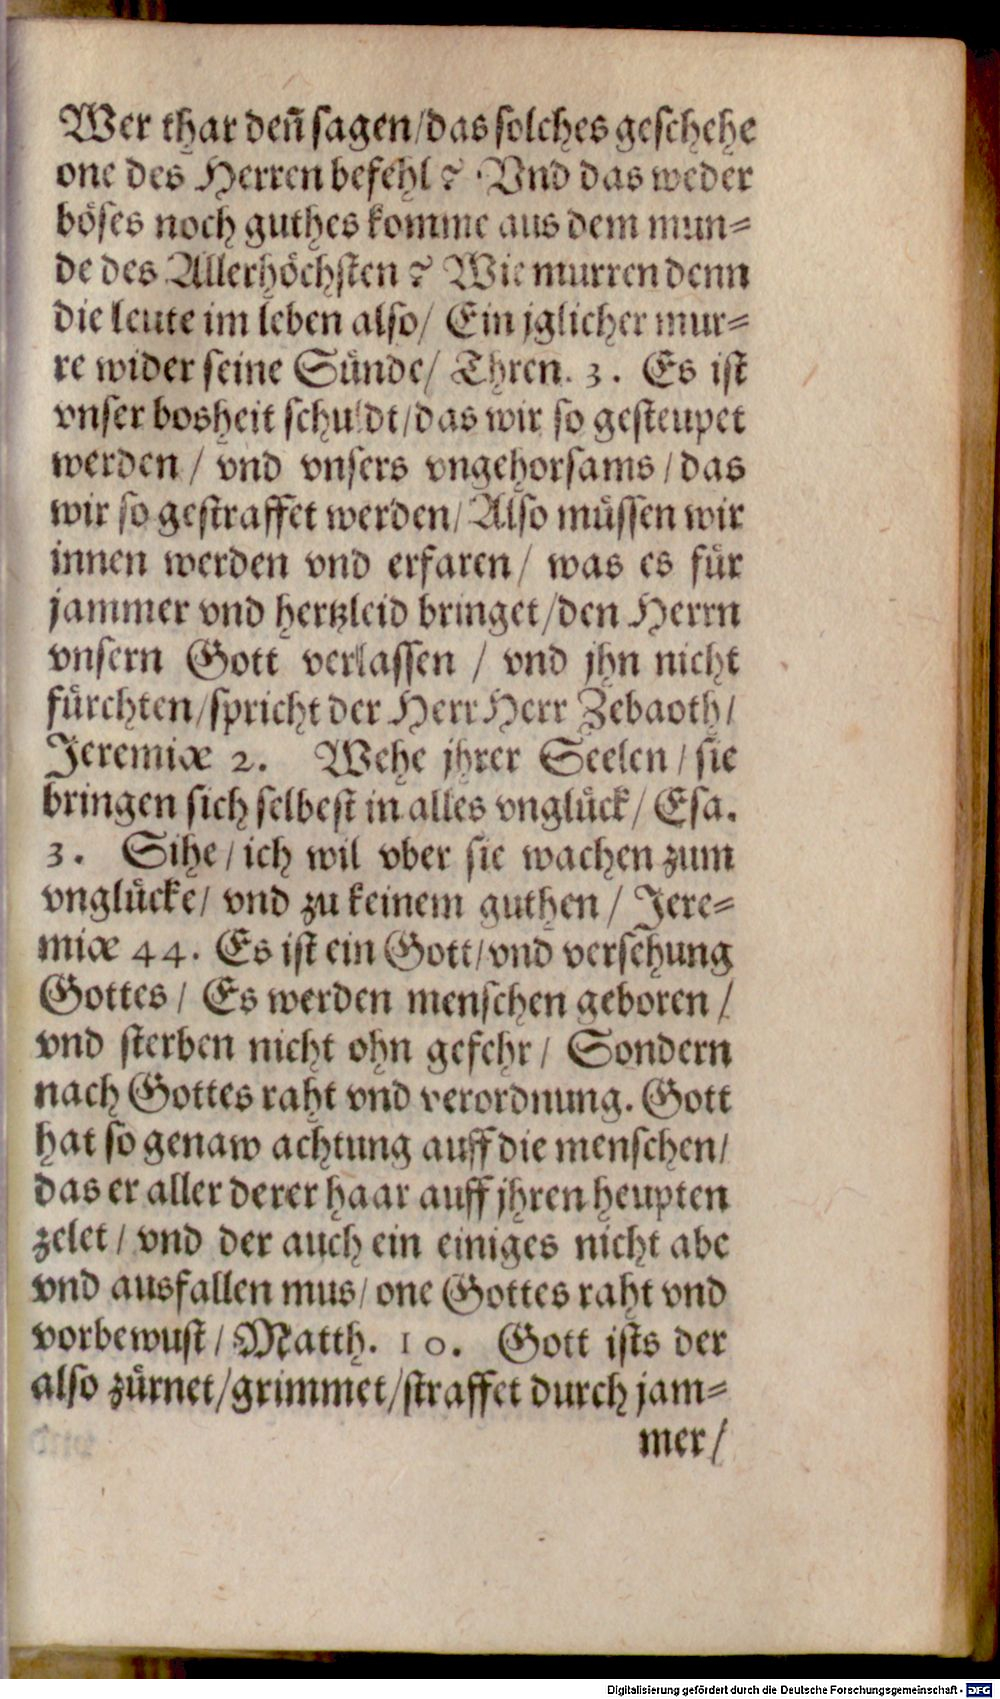 Wer thar den̄ sagen/das solches geschehe
one des Herren befehl? Vnd das weder
böses noch guthes komme aus dem mun-
de des Allerhöchsten? Wie murren denn
die leute im leben also/ Ein jglicher mur-
re wider seine Sünde/ Thren. 3. Es ist
vnser bosheit schuldt/das wir so gesteupet
werden/ vnd vnsers vngehorsams/das
wir so gestraffet werden/Also müssen wir
innen werden vnd erfaren/ was es für
jammer vnd hertzleid bringet/den Herrn
vnsern Gott verlassen/ vnd jhn nicht
fürchten/spricht der Herr Herr Zebaoth/
Jeremiæ 2. Wehe jhrer Seelen/sie
bringen sich selbest in alles vnglück/ Esa.
3. Sihe/ich wil vber sie wachen zum
vnglücke/ vnd zu keinem guthen/ Jere-
miæ 44. Es ist ein Gott/vnd versehung
Gottes/ Es werden menschen geboren/
vnd sterben nicht ohn gefehr/ Sondern
nach Gottes raht vnd verordnung. Gott
hat so genaw achtung auff die menschen/
das er aller derer haar auff jhren heupten
zelet/ vnd der auch ein einiges nicht abe
vnd ausfallen mus/one Gottes raht vnd
vorbewust/Matth. 10. Gott ists der
also zürnet/grimmet/straffet durch jam-
mer/
Digitalisierung gefördert durch die Deutsche Forschungsgemeinschaft - DFG